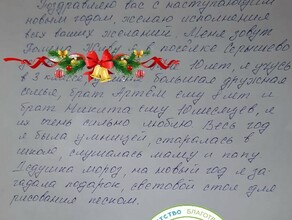 Поздравляю вас с наступающим
новым годом, желаю исполнения
всех ваших желаний. Меня зовут
в посёлке
10 лет, я учусь
в 3 большая дружная
семья, брат Артём ему лет и
брат Никита ему 10 месяцев, я
их очень сильно люблю. Весь год
я была умницей, старалась в
школе, слушалась маму и папу
Дедушка мороз, на новый год я за-
гадала подарок, световой стол для
рисования песком.
ТСТВО БЛАГОТВ